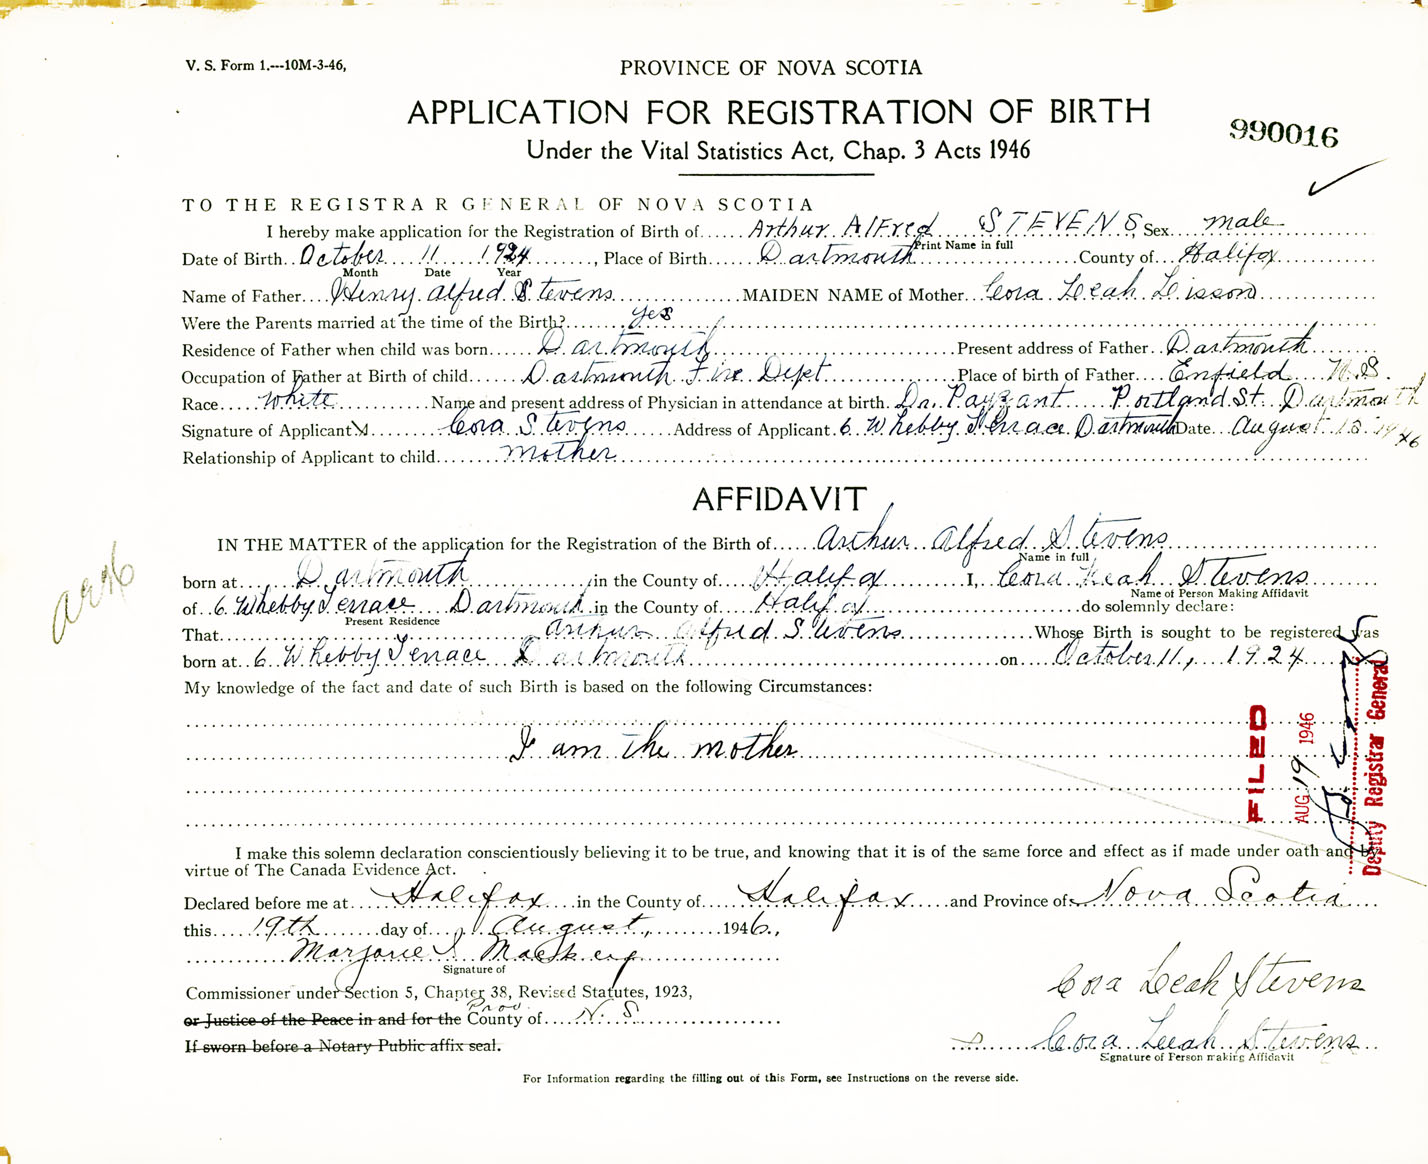 V. S. Form 1.---10M-3-46,
PROVINCE OF NOVA SCOTIA
APPLICATION FOR REGISTRATION OF BIRTH
990016
Under the Vital Statistics Act, Chap. 3 Acts 1946
TO THE REGISTRAR GENERAL OF NOVA SCOTIA
I hereby make application for the Registration of Birth of...... Arthur Alfred STEVENS, Sex male
Print Name in full
Date of Birth.. October 11 1924, Place of Birth...... Dartmouth County of Halifax
Month Date Year
Name of Father.... Henry Alfred Stevens MAIDEN NAME of Mother.. Cora Leah Lisson
Were the Parents married at the time of the Birth? yes
Residence of Father when child was born...... Dartmouth Present address of Father.. Dartmouth
Occupation of Father at Birth of child...... Dartmouth Fire Dept Place of birth of Father.... Enfield N.S.
Race.... White Name and present address of Physician in attendance at birth. Dr. Payzant Portland St. Dartmouth
Signature of Applicant Cora Stevens Address of Applicant. 6 Whebby Terrace Dartmouth Date.. August 1946
Relationship of Applicant to child........ mother
AFFIDAVIT
IN THE MATTER of the application for the Registration of the Birth of..... Arthur Alfred Stevens
Name in full
born at.... Dartmouth in the County of.... Halifax I, Cora Leah Stevens
Name of Person Making Affidavit
of.. 6 Whebby Terrace Dartmouth in the County of.... Halifax do solemnly declare:
Present Residence
That Arthur Alfred Stevens Whose Birth is sought to be registered was
born at.. 6 Whebby Terrace Dartmouth on October 11, 1924
My knowledge of the fact and date of such Birth is based on the following Circumstances:
I am the mother
FILED
AUG 19 1946
Deputy Registrar General
I make this solemn declaration conscientiously believing it to be true, and knowing that it is of the same force and effect as if made under oath and by
virtue of The Canada Evidence Act.
Declared before me at.... Halifax in the County of.. Halifax and Province of Nova Scotia
this.... 19th day of.... August, 1946.,
Marjorie
Signature of
Cora Leah Stevens
Commissioner under Section 5, Chapter 38, Revised Statutes, 1923,
Prov.
or Justice of the Peace in and for the County of.... N. S
Cora Leah Stevens
If sworn before a Notary Public affix seal.
Signature of Person making Affidavit
For Information regarding the filling out of this Form, see Instructions on the reverse side.